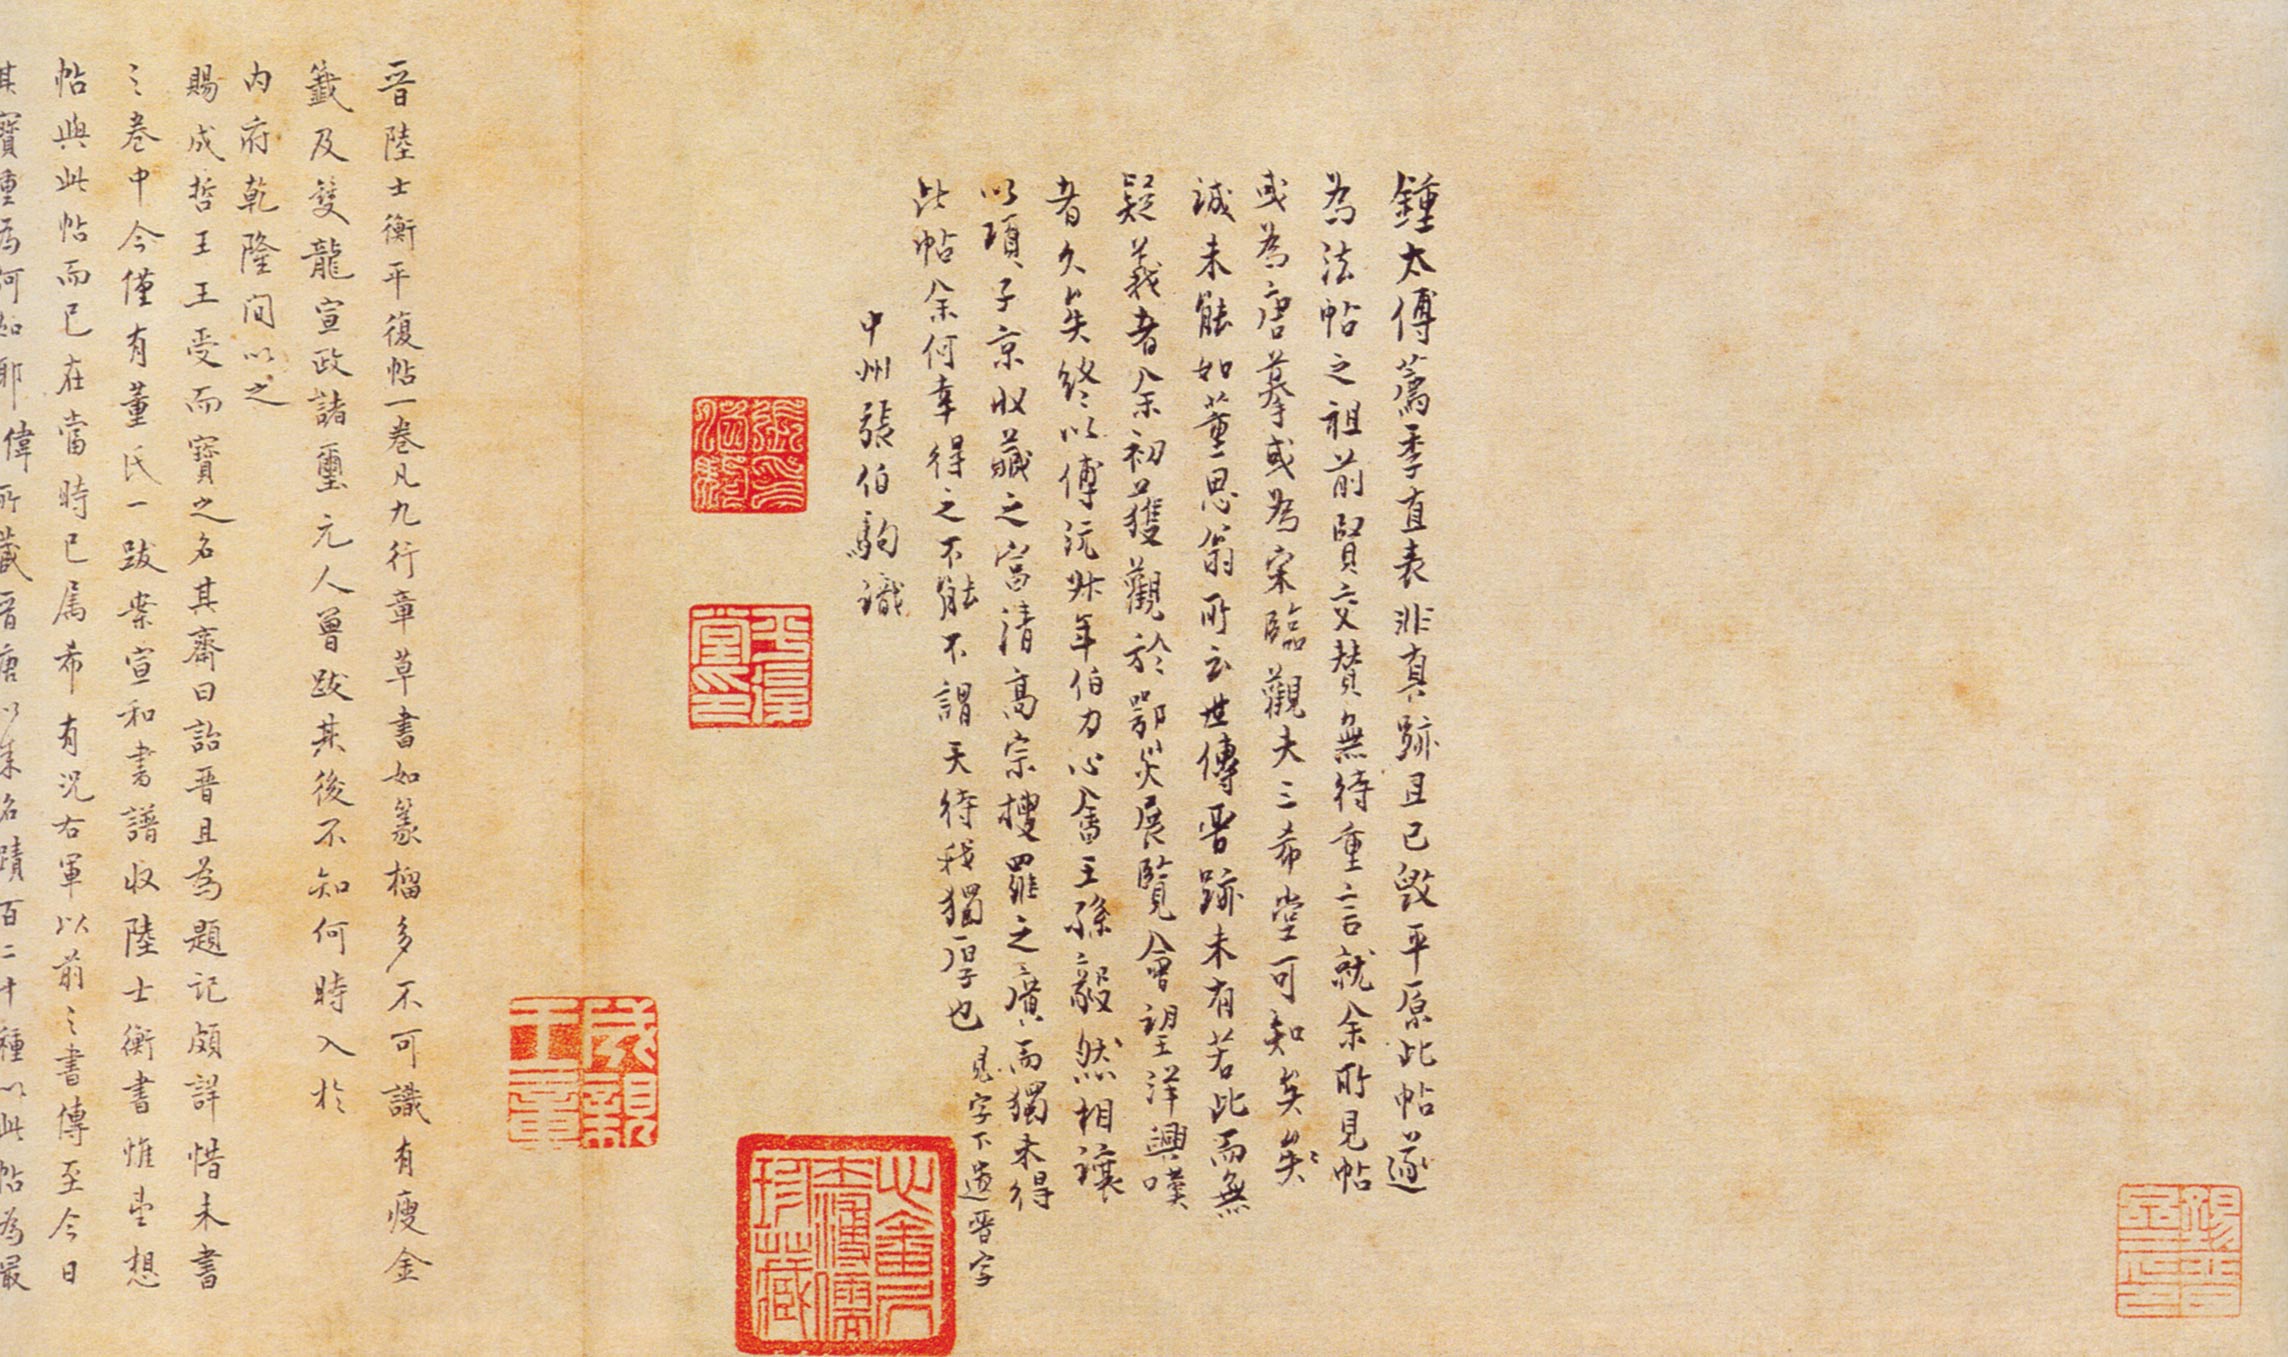 鍾太傅薦季直表非真跡且已毀平原此帖遂
為法帖之祖前賢交贊無待重言就余所見帖
或為唐摹或為宋臨觀夫三希堂可知矣矣
誠未能如董思翁所云世傳晉跡未有若此而無
疑義者余初獲觀於鄂災展覽會望洋興嘆
者久矣終以傅沅叔年伯力心畬王孫毅然相讓
以項子京收藏之富清高宗搜羅之廣而獨未得
此帖余何幸得之不能不謂天待我獨厚也
見字下遺晉字
中州張伯駒識
張伯駒
平復堂印
心畬
珍藏
成親王
晉陸士衡平復帖一卷凡九行章草書如篆榴多不可識有瘦金
籤及雙龍宣政諸璽元人曾跋其後不知何時入於
內府乾隆間以之
賜成哲王王受而寶之名其齋曰詒晉且為題記頗詳惜未書
之卷中今僅有董氏一跋案宣和書譜收陸士衡書惟此想
帖與此帖而已在當時已屬希有況右軍以前之書傳至今日
其寶重為何如耶偉所藏晉唐以來名蹟百二十種以此帖為最